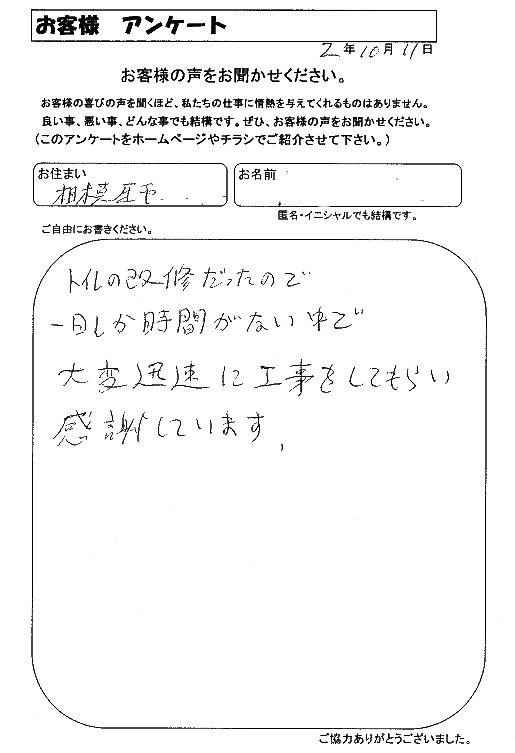 お客様 アンケート
2年10月11日
お客様の声をお聞かせください。
お客様の喜びの声を聞くほど、私たちの仕事に情熱を与えてくれるものはありません。
良い事、悪い事、どんな事でも結構です。ぜひ、お客様の声をお聞かせください。
(このアンケートをホームページやチラシでご紹介させて下さい。)
お住まい
相模原市
お名前
匿名・イニシャルでも結構です。
ご自由にお書きください。
トイレの改修だったので
一日しか時間がない中で
大変迅速に工事をしてもらい
感謝しています。
ご協力ありがとうございました。